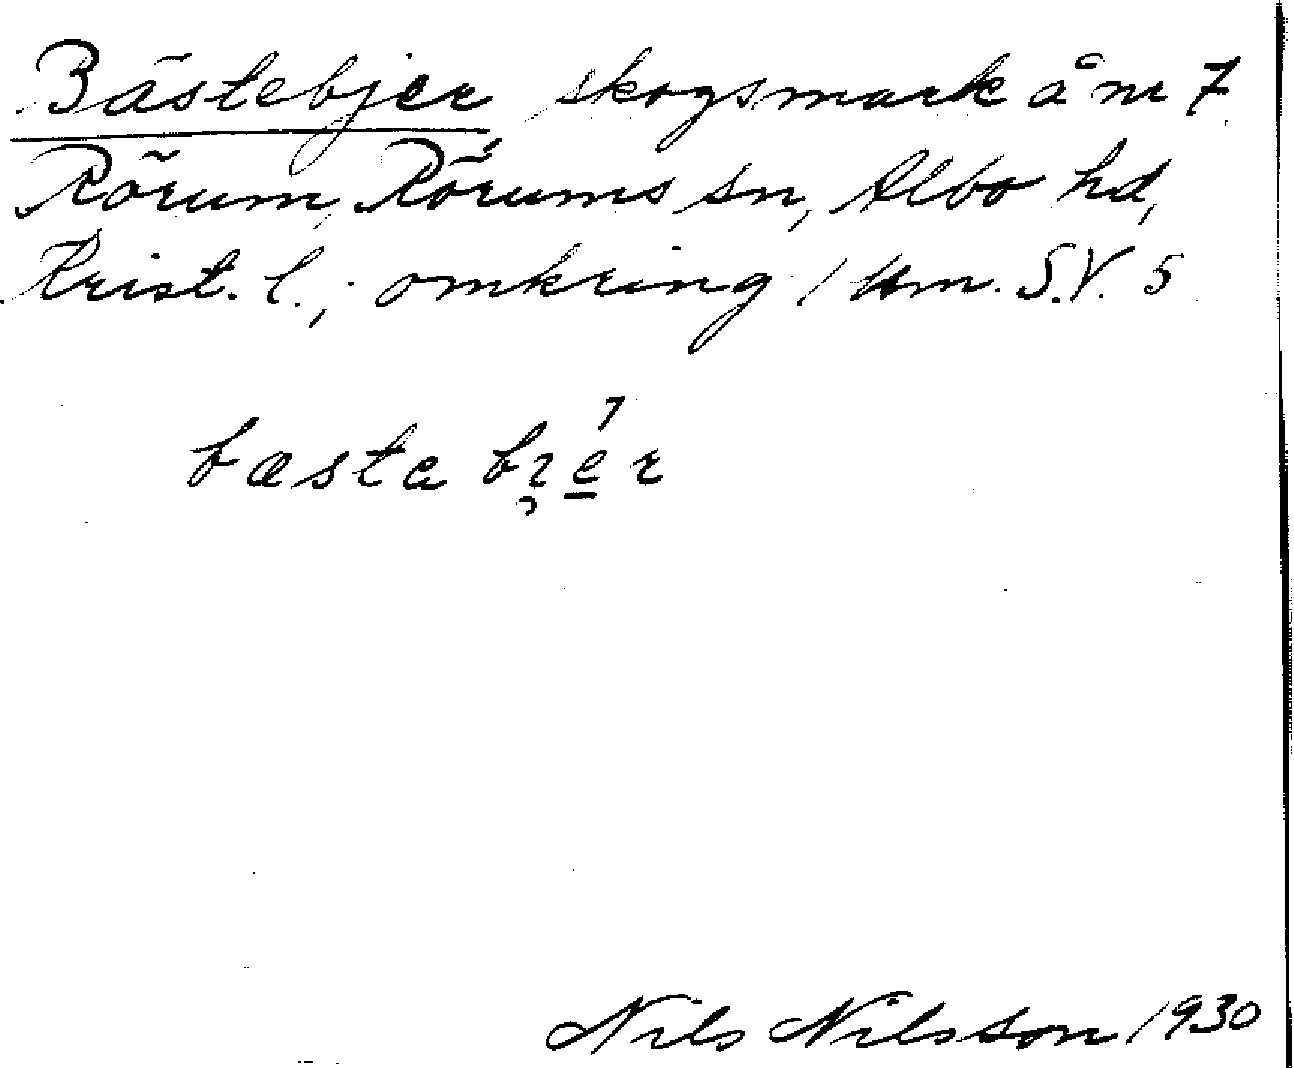 Bästebjer skogsmark å nr 7
Rörum, Rörums sn, Albo hd,
Krist. l.; omkring 1 km. S.V. 5
bæsta bɿér
Nils Nilsson 1930